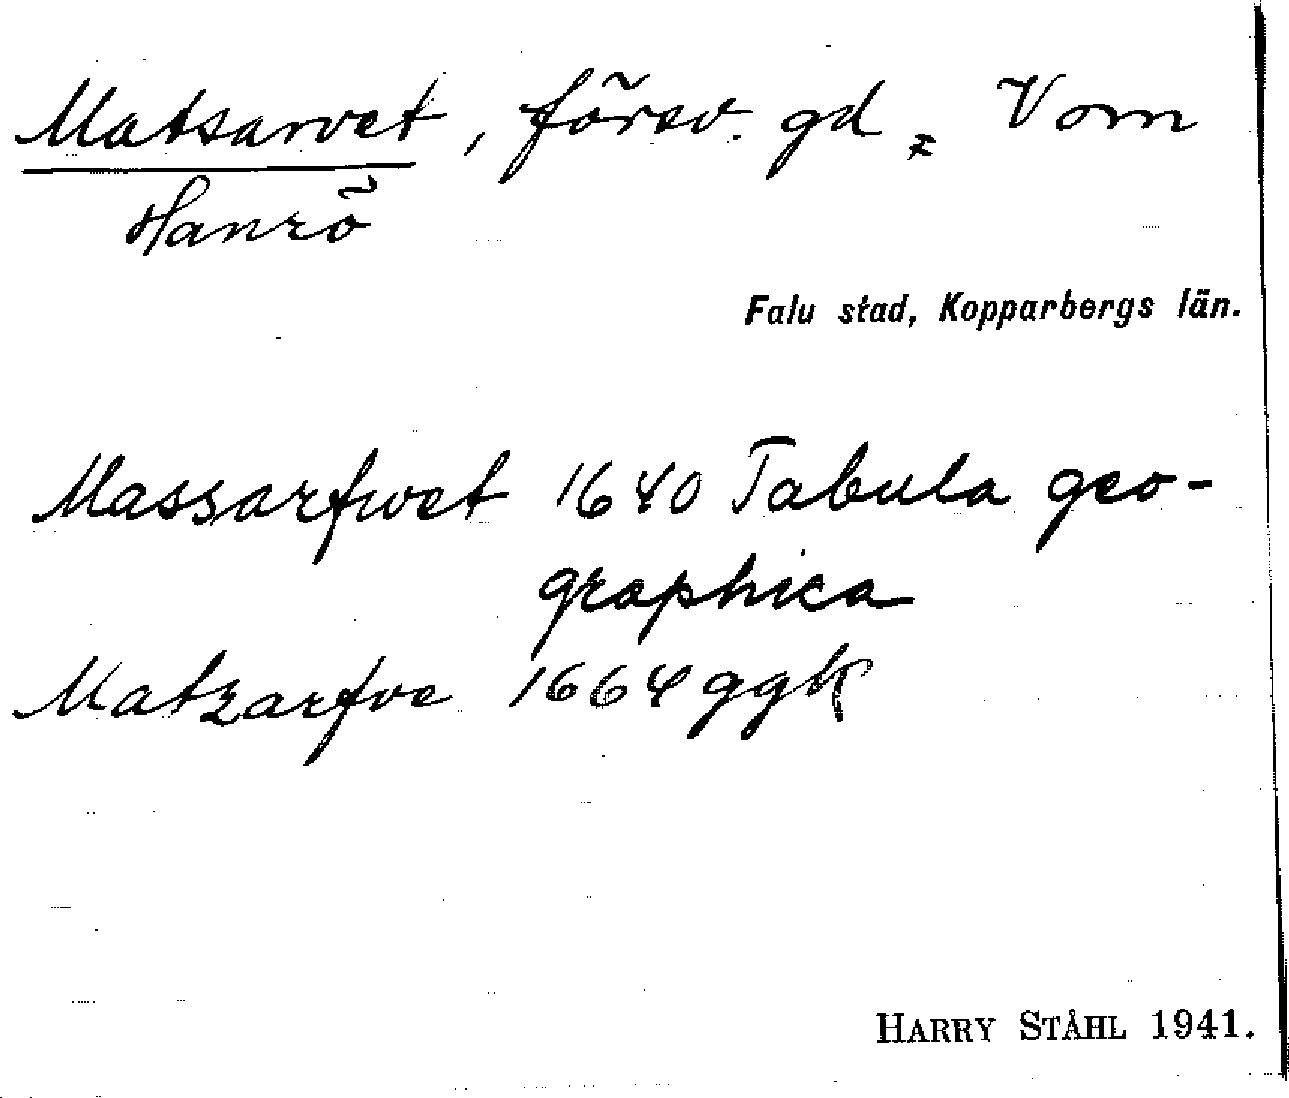 Matsarvet, försv. gd, Vom
Hanrö
Falu stad, Kopparbergs län.
Massarfwet 1640 Tabula geo-
graphica
Matzarfve 1664 ggk
HARRY STÅHL 1941.